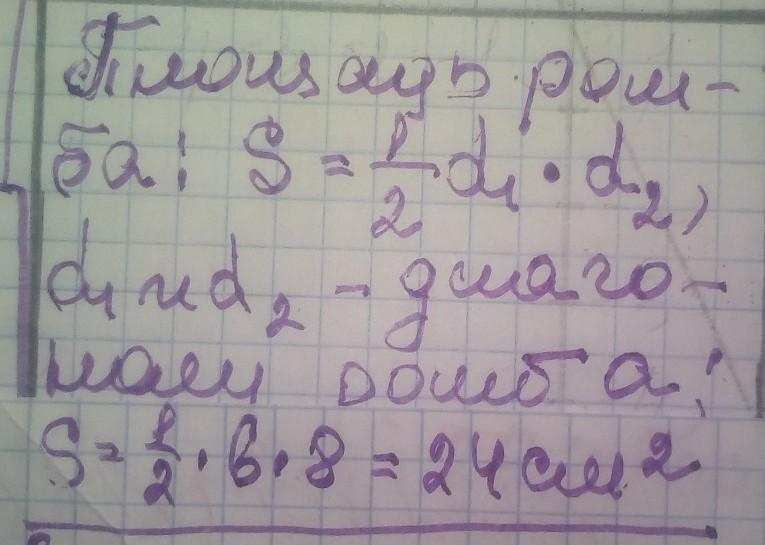 Площадь ром-
ба: S = 1/2 d₁ · d₂,
d₁ и d₂ - диаго-
нали ромба:
S = 1/2 · 6 · 8 = 24 см²